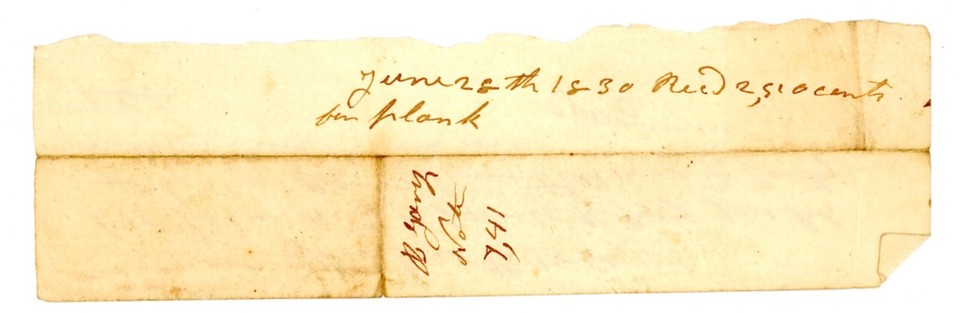 June 28th 1830 Recd 2,910 cents
for plank
Note
7,41